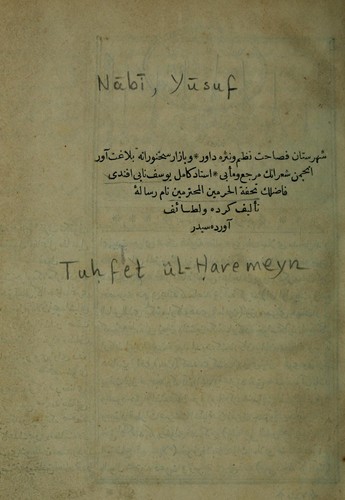 Nābī, Yūsuf
شهرستان فصاحت نظم ونثره داور * وبازار سخنورانه بلاغت آور
انجمن شعرانك مرجع ومأبی * استاد كامل یوسف نابی افندی
فاضلك تحفة الحرمین المحترمین نام رسالهٔ
تألیف كرد * ولطائف
آورد * سیدر
Tuḥfet ül-Ḥaremeyn